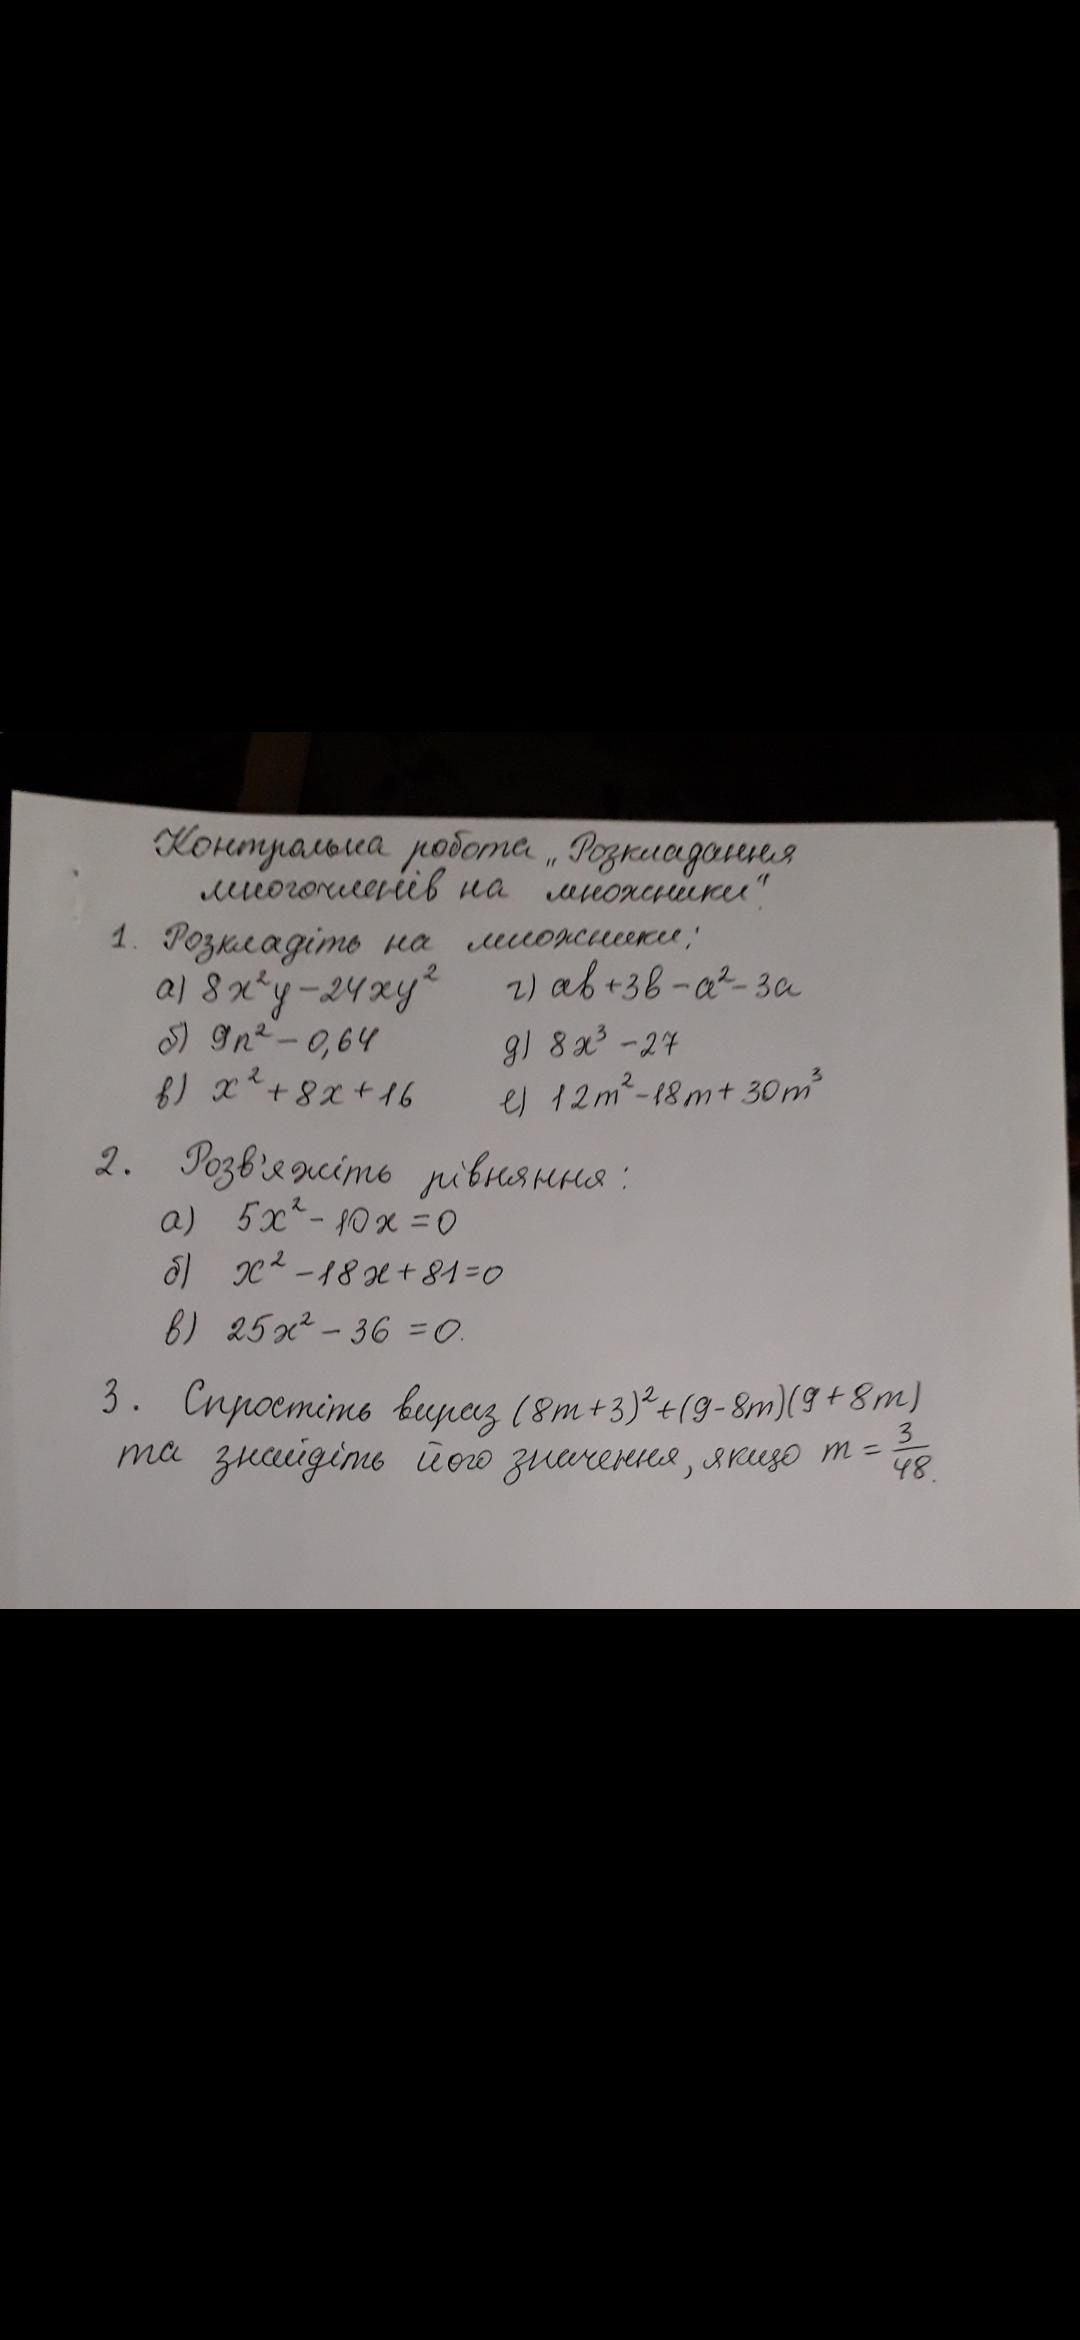 Контрольна робота „Розкладання
многочленів на множники“.
1. Розкладіть на множники:
а) 8x²y - 24xy² г) ab + 3b - a² - 3a
б) 9n² - 0,64 д) 8x³ - 27
в) x² + 8x + 16 е) 12m² - 18m + 30m³
2. Розв'яжіть рівняння:
а) 5x² - 10x = 0
б) x² - 18x + 81 = 0
в) 25x² - 36 = 0.
3. Спростіть вираз (8m + 3)² + (9 - 8m)(9 + 8m)
та знайдіть його значення, якщо m = 3/48.